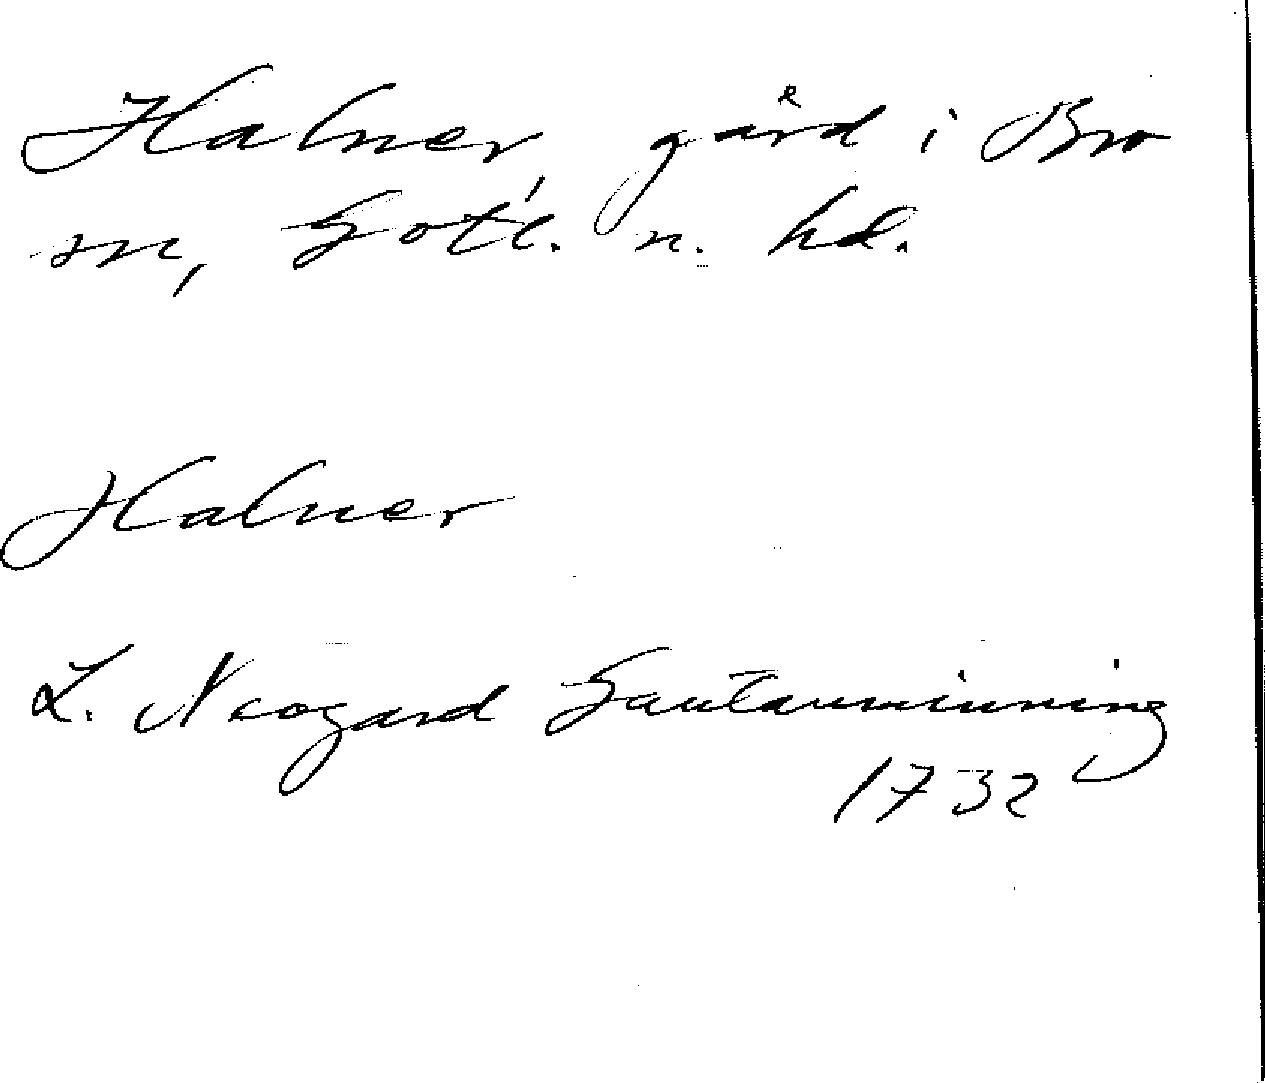 Halner, gård i Bro
sn, Gotl. n. hd.
Halner
L. Neogard Gautauminning
1732